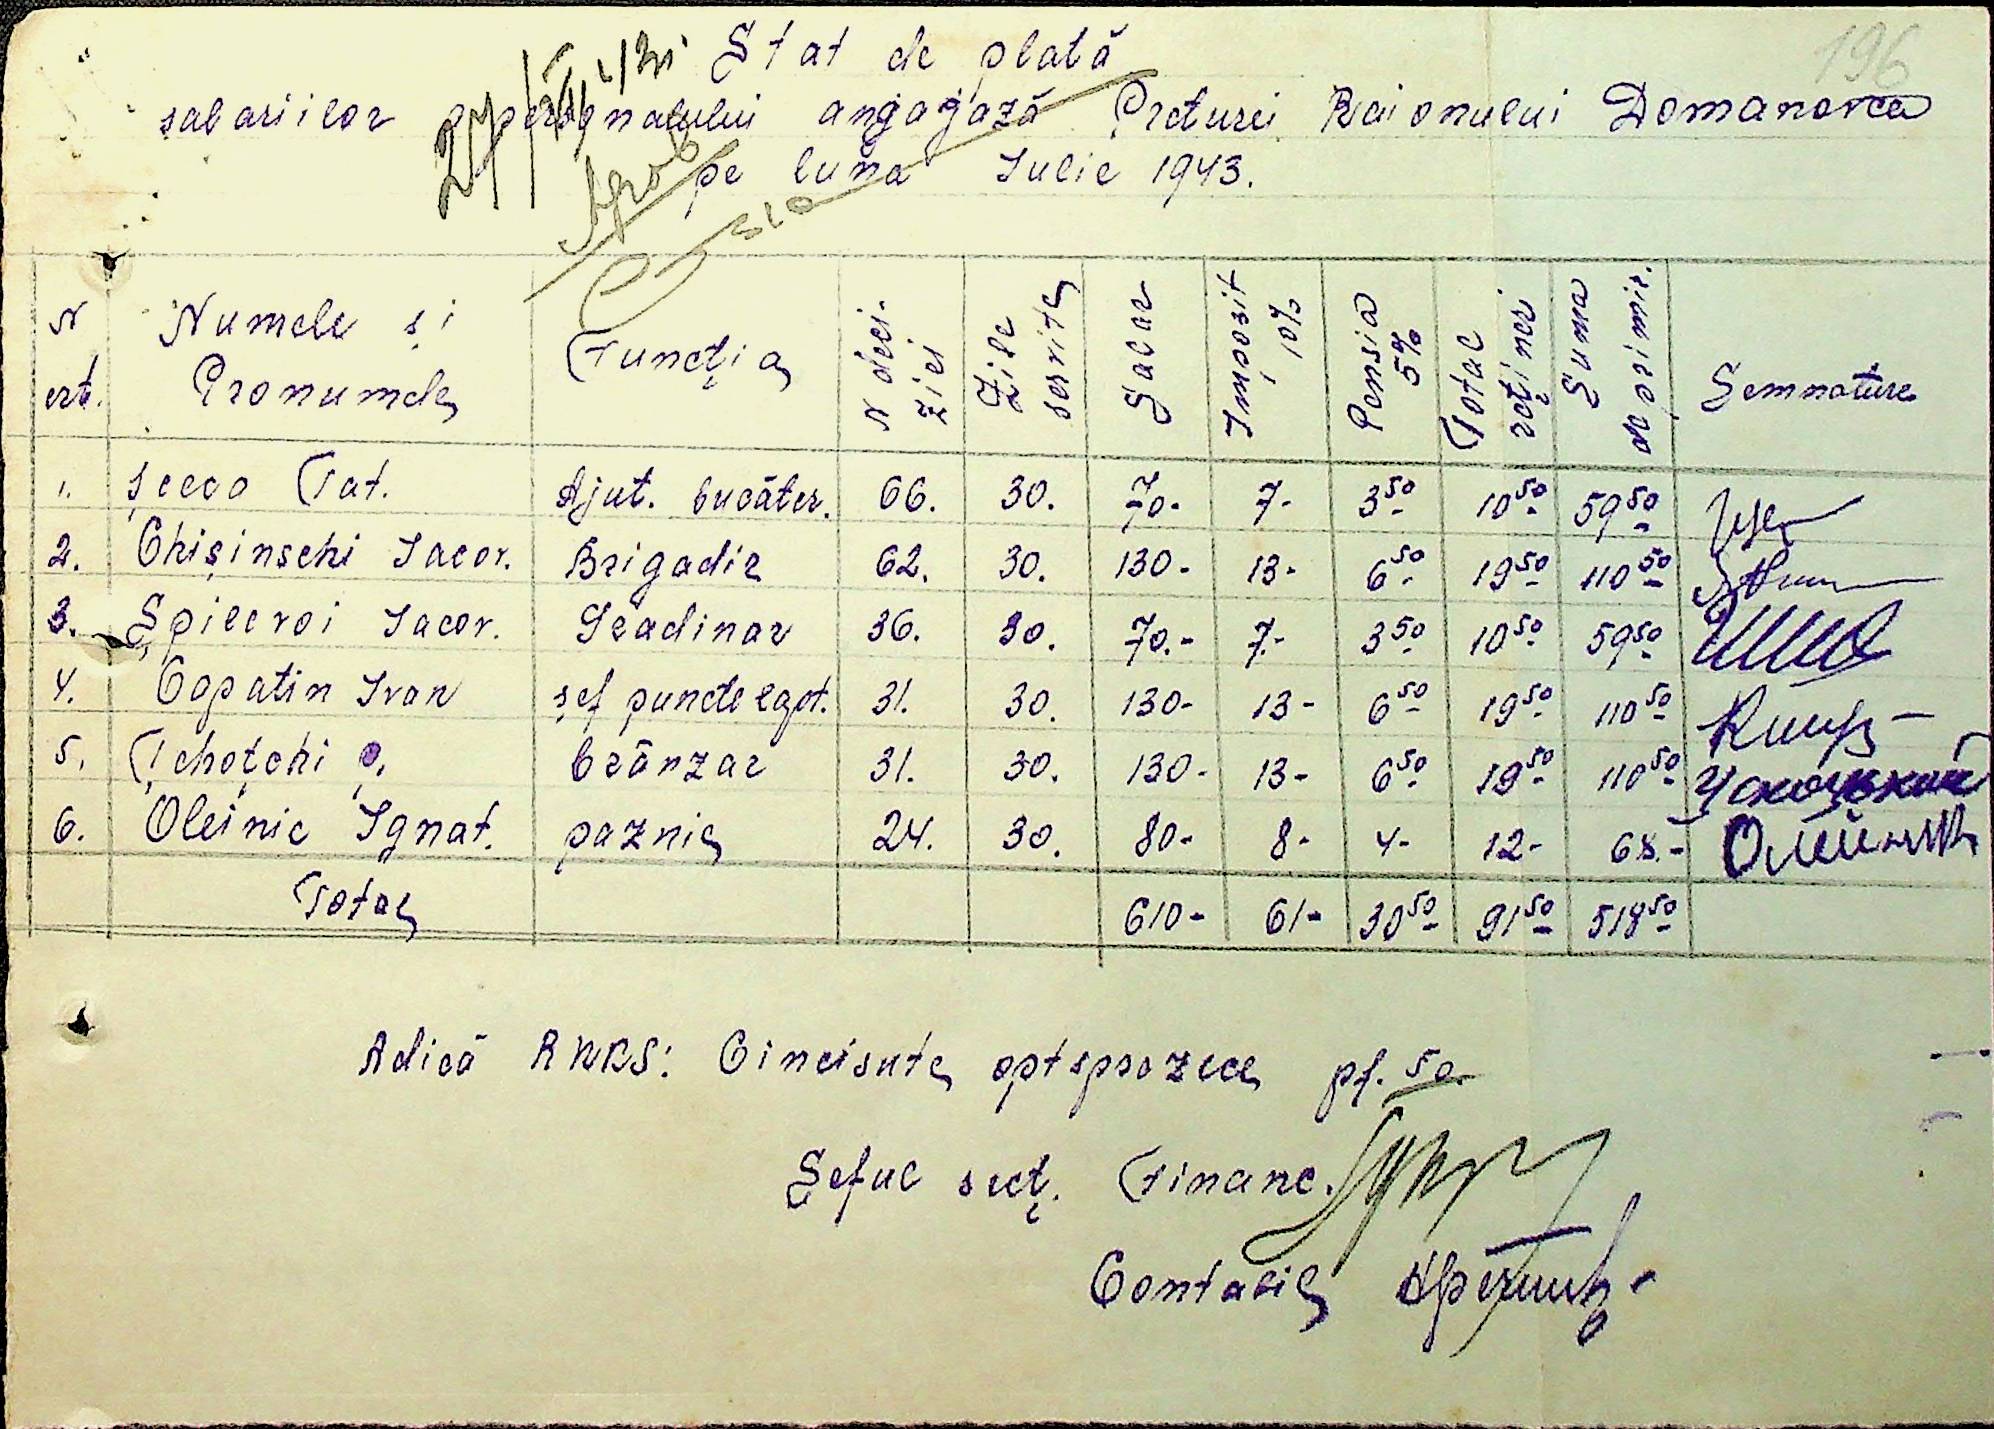 196
Stat de plată
salariilor personalului angajază Preturei Raionului Domanovca
pe luna Iulie 1943.
N crt. Numele și Pronumele Funcția N deciziei Zile servite Salar Imposit 10% Pensia 5% Total rețineri Suma de primir. Semnature
1. Ajut. bucăter. 66. 30. 70.- 7- 3 50 10 50 59 50
2. Chișinschi Iacov. Brigadir 62. 30. 130- 13- 6 50 19 50 110 50
3. Șpilevoi Iacov. Gradinar 36. 30. 70.- 7- 3 50 10 50 59 50
4. Copatin Ivan șef puncte 31. 30. 130- 13- 6 50 19 50 110 50
5. Țchoțchi brânzar 31. 30. 130- 13- 6 50 19 50 110 50
6. Oleinic Ignat. paznic 24. 30. 80- 8- 4- 12- 68.- Олейник
Total 610- 61- 30 50 91 50 518 50
Adică RKKS: Cincisute optsprozece pf. 50.
Șeful secț. Financ.
Contabil